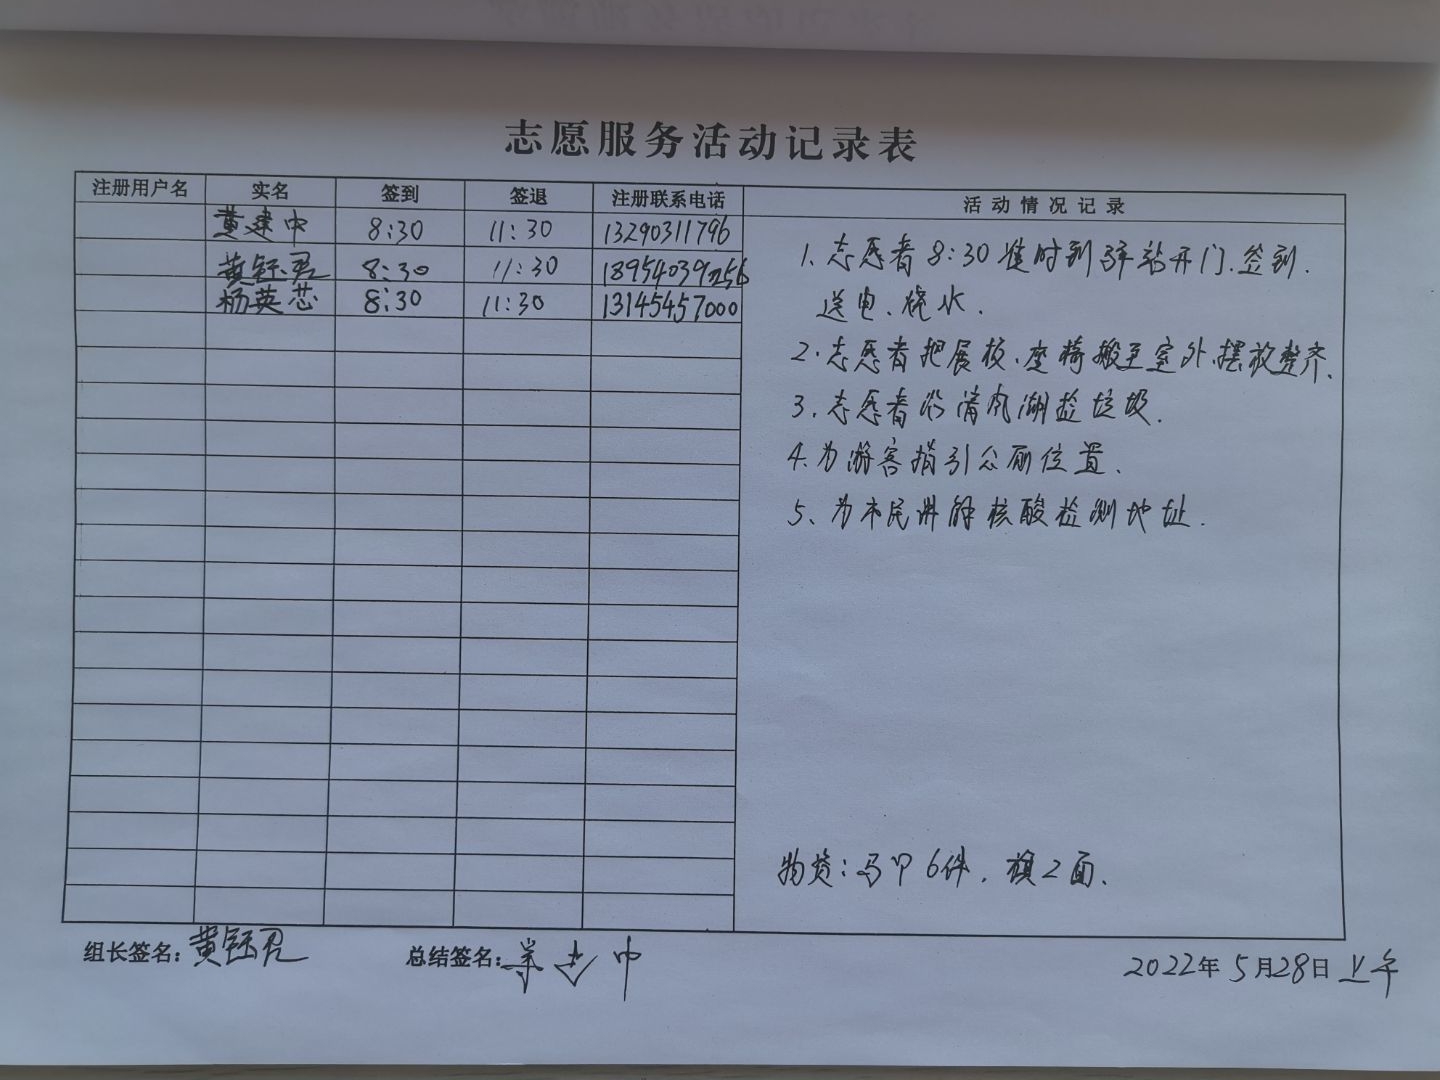 志愿服务活动记录表
注册用户名 实名 签到 签退 注册联系电话 活动情况记录
黄建中 8:30 11:30 13290311796
黄钰君 8:30 11:30 18954039256
杨英芯 8:30 11:30 13145457000
1、志愿者8:30准时到驿站开门、签到.
送电、烧水.
2、志愿者把展板、座椅搬至室外、摆放整齐、
3、志愿者沿清风湖捡垃圾.
4、为游客指引公厕位置、
5、为市民讲解核酸检测地址.
物资:马甲6件、旗2面、
组长签名:黄钰君 总结签名:
2022年5月28日上午